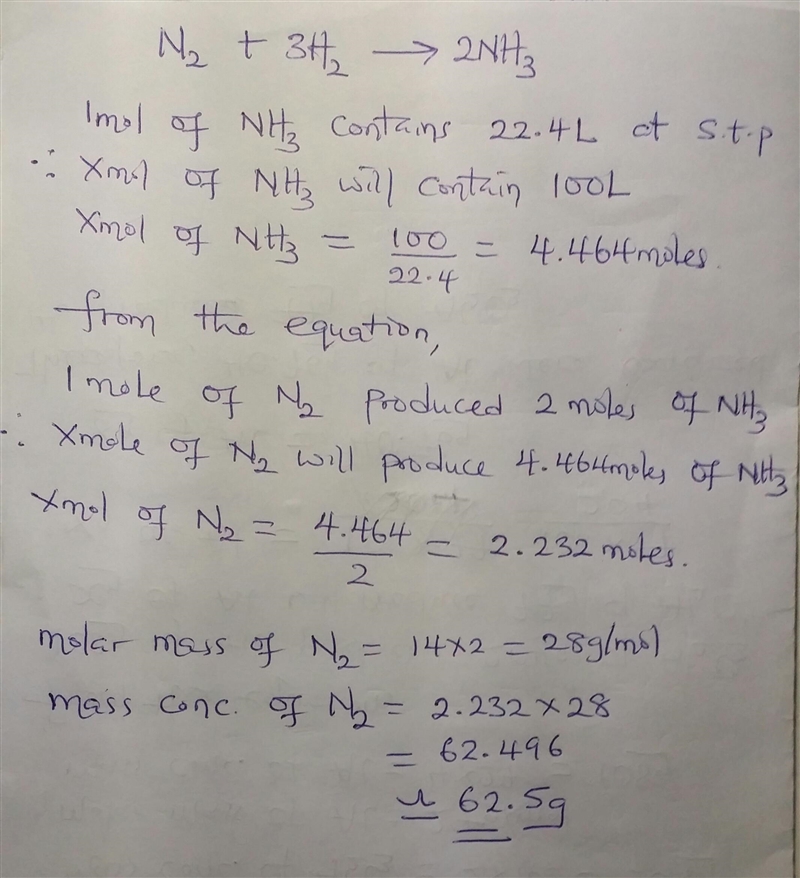 N₂ + 3H₂ → 2NH₃
1mol of NH₃ contains 22.4L at s.t.p
∴ Xmol of NH₃ will contain 100L
Xmol of NH₃ = 100/22.4 = 4.464moles.
from the equation,
1 mole of N₂ produced 2 moles of NH₃
∴ Xmole of N₂ will produce 4.464moles of NH₃
Xmol of N₂ = 4.464/2 = 2.232 moles.
molar mass of N₂ = 14×2 = 28g/mol
mass conc. of N₂ = 2.232×28
= 62.496
≃ 62.5g